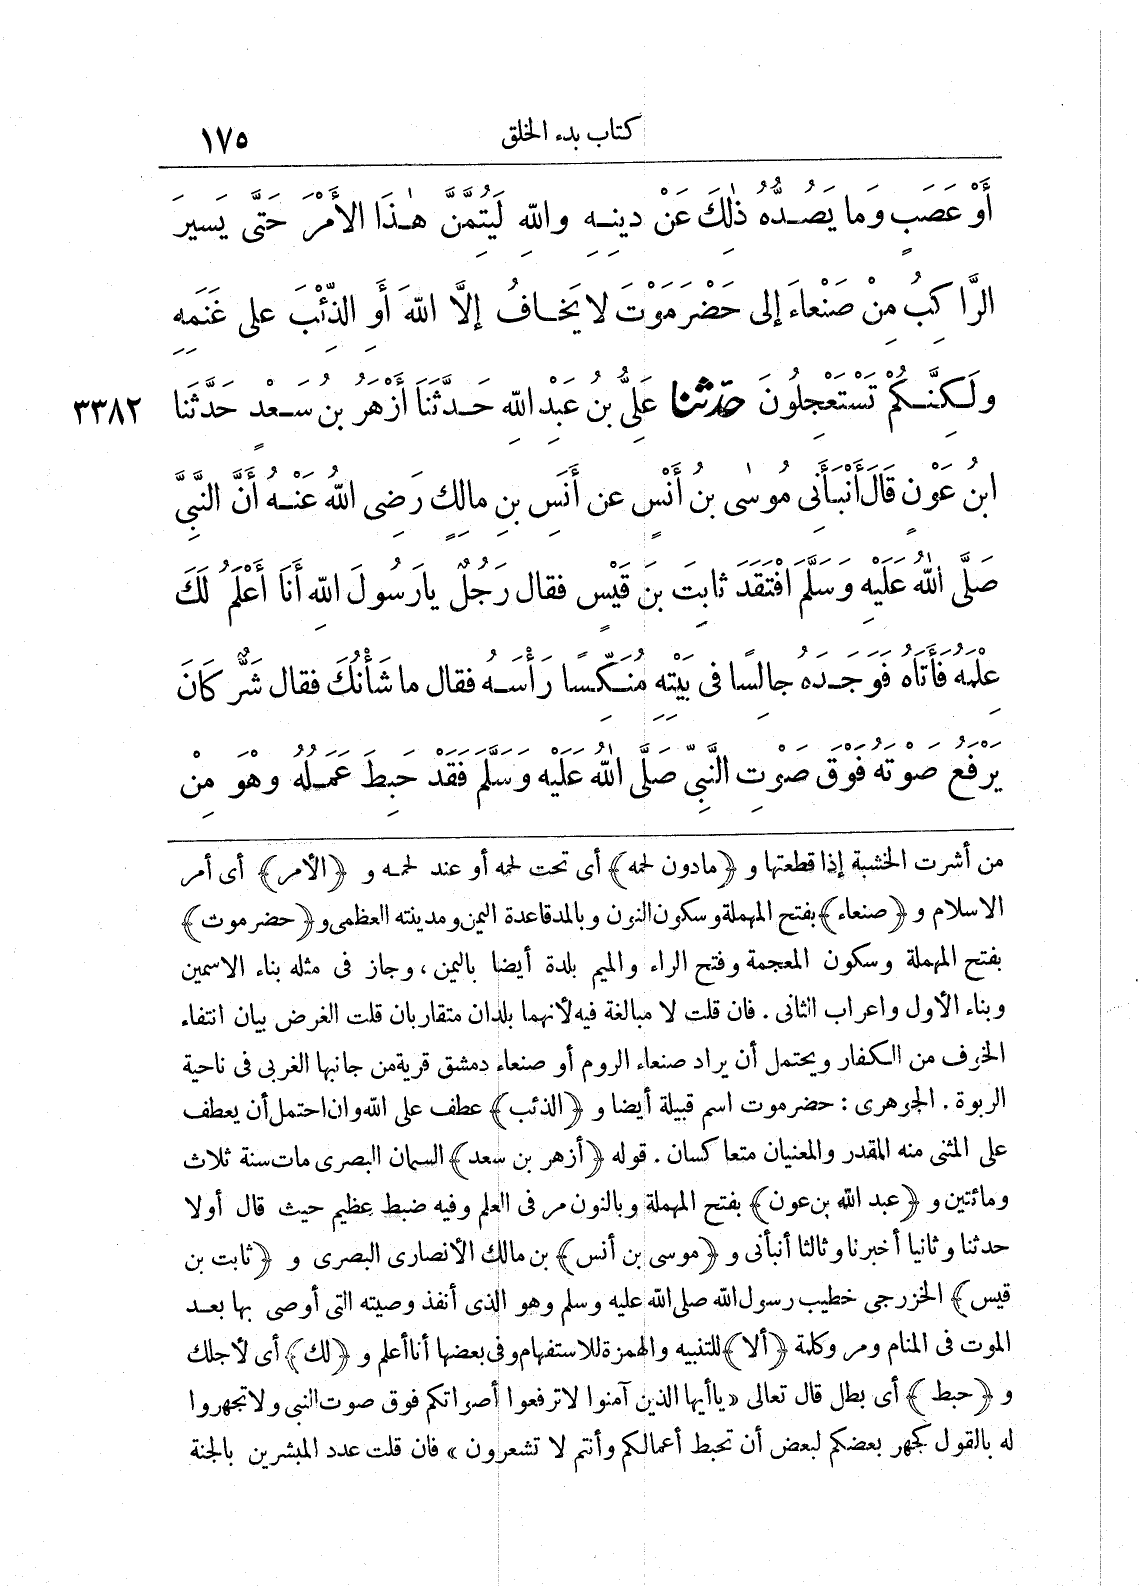 كتاب بدء الخلق ١٧٥
أَوْ عَصَبٍ وَما يَصُدُّهُ ذٰلِكَ عَنْ دِينِهِ واللهِ لَيُتِمَّنَّ هٰذَا الأَمْرَ حَتَّى يَسِيرَ
الرَّاكِبُ مِنْ صَنْعاءَ إلى حَضْرَمَوْتَ لا يَخافُ إلَّا اللهَ أَوِ الذِّئْبَ على غَنَمِهِ
ولَكِنَّكُمْ تَسْتَعْجِلُونَ حدّثنا عَلِيُّ بنُ عَبْدِ اللهِ حَدَّثَنَا أَزْهَرُ بنُ سَعْدٍ حَدَّثَنا ٣٣٨٢
ابنُ عَوْنٍ قَالَ أَنْبَأَنِى مُوسٰى بنُ أَنَسٍ عن أَنَسِ بنِ مالِكٍ رَضِى اللهُ عَنْهُ أَنَّ النَّبِىَّ
صَلَّى اللهُ عَلَيْهِ وَسَلَّمَ افْتَقَدَ ثابِتَ بنَ قَيْسٍ فقال رَجُلٌ يارَسُولَ اللهِ أَنَا أَعْلَمُ لَكَ
عِلْمَهُ فَأَتَاهُ فَوَجَدَهُ جالِسًا فى بَيْتِهِ مُنَكِّسًا رَأْسَهُ فقال ما شَأْنُكَ فقال شَرٌّ كانَ
يَرْفَعُ صَوْتَهُ فَوْقَ صَوْتِ النَّبِىِّ صَلَّى اللهُ عَلَيْهِ وَسَلَّمَ فَقَدْ حَبِطَ عَمَلُهُ وهْوَ مِنْ
من أشرت الخشبة إذا قطعتها و ﴿مادون لحمه﴾ أى تحت لحمه أو عند لحمه و ﴿الأمر﴾ أى أمر
الاسلام و ﴿صنعاء﴾ بفتح المهملة وسكون النون وبالمد قاعدة اليمن ومدينته العظمى و ﴿حضرموت﴾
بفتح المهملة وسكون المعجمة وفتح الراء والميم بلدة أيضا باليمن، وجاز فى مثله بناء الاسمين
وبناء الأول واعراب الثانى. فان قلت لا مبالغة فيه لأنهما بلدان متقاربان قلت الغرض بيان انتفاء
الخوف من الكفار ويحتمل أن يراد صنعاء الروم أو صنعاء دمشق قرية من جانبها الغربى فى ناحية
الربوة. الجوهرى: حضرموت اسم قبيلة أيضا و ﴿الذئب﴾ عطف على الله وان احتمل أن يعطف
على المثنى منه المقدر والمعنيان متعاكسان. قوله ﴿أزهر بن سعد﴾ السمان البصرى مات سنة ثلاث
ومائتين و ﴿عبد الله بن عون﴾ بفتح المهملة وبالنون مر فى العلم وفيه ضبط عظيم حيث قال أولا
حدثنا وثانيا أخبرنا وثالثا أنبأنى و ﴿موسى بن أنس﴾ بن مالك الأنصارى البصرى و ﴿ثابت بن
قيس﴾ الخزرجى خطيب رسول الله صلى الله عليه وسلم وهو الذى أنفذ وصيته التى أوصى بها بعد
الموت فى المنام ومر وكلمة ﴿ألا﴾ للتنبيه والهمزة للاستفهام وفى بعضها أنا أعلم و ﴿لك﴾ أى لأجلك
و ﴿حبط﴾ أى بطل قال تعالى «ياأيها الذين آمنوا لاترفعوا أصواتكم فوق صوت النبى ولاتجهروا
له بالقول كجهر بعضكم لبعض أن تحبط أعمالكم وأنتم لا تشعرون» فان قلت عدد المبشرين بالجنة